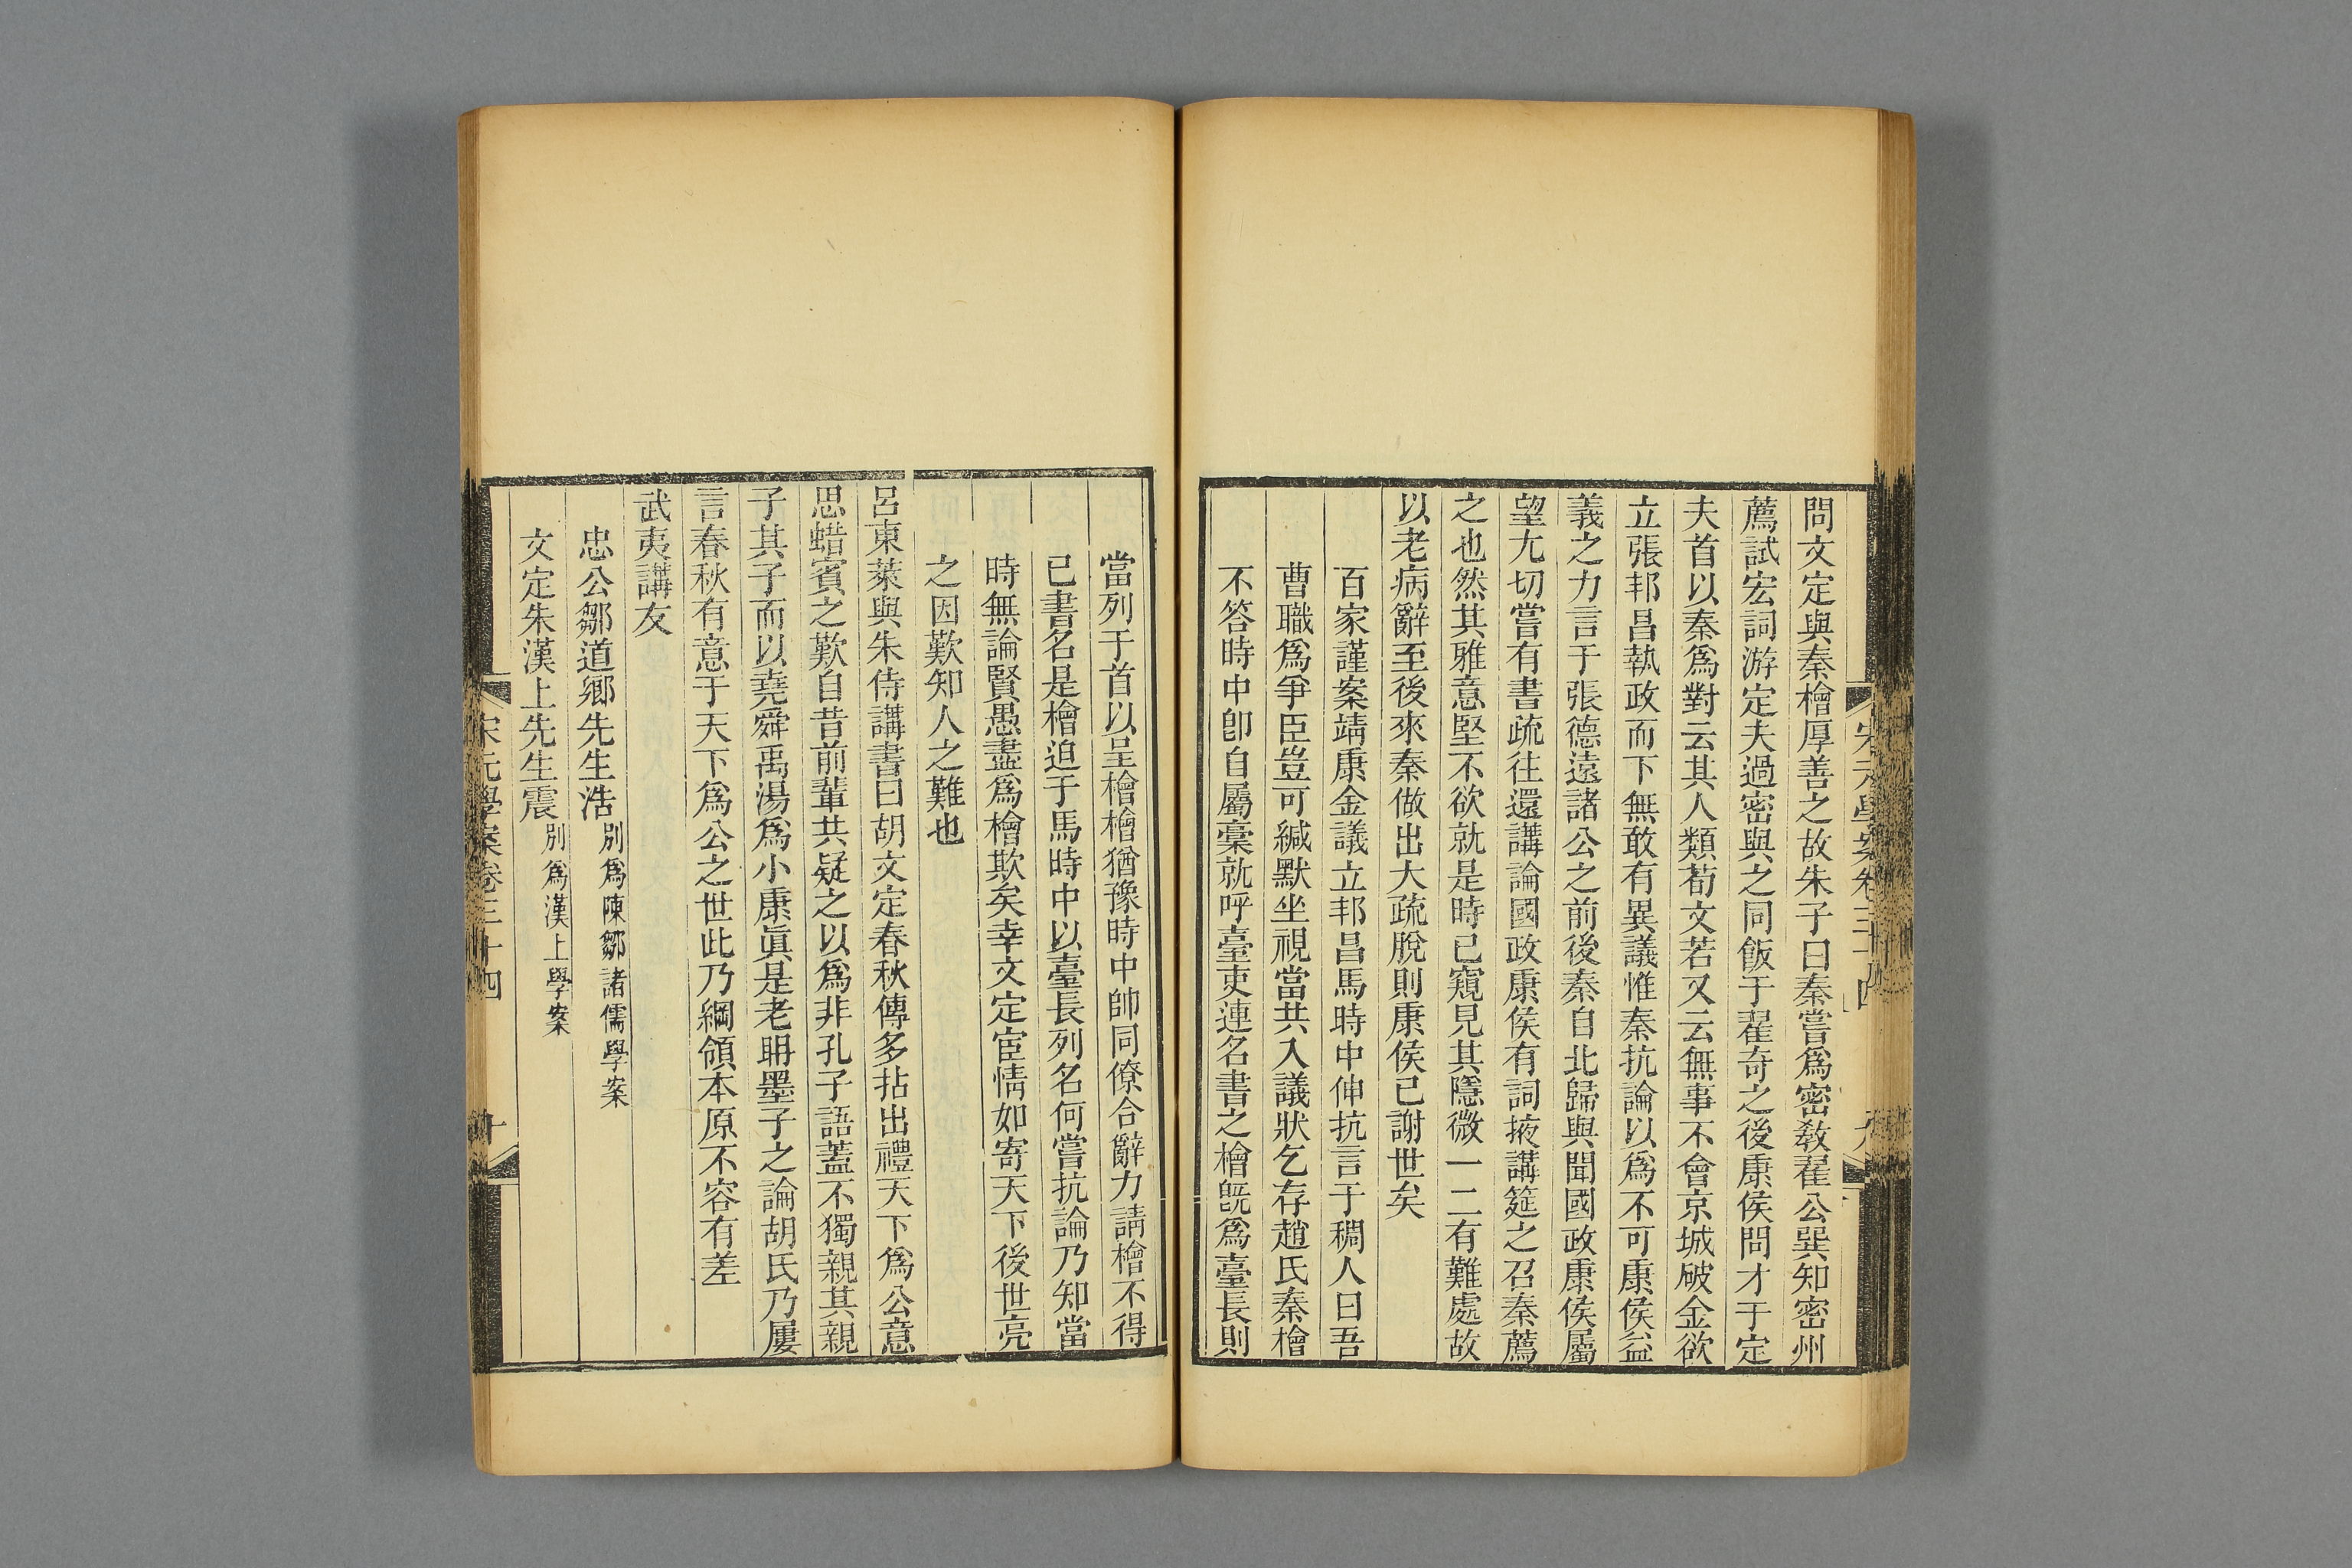 問文定與秦檜厚善之故朱子曰秦嘗爲密敎翟公巽知密州
薦試宏詞游定夫過密與之同飯于翟奇之後康侯問才于定
夫首以秦爲對云其人類荀文若又云無事不會京城破金欲
立張邦昌執政而下無敢有異議惟秦抗論以爲不可康侯益
義之力言于張德遠諸公之前後秦自北歸與聞國政康侯屬
望尤切嘗有書疏往還講論國政康侯有詞掖講筵之召秦薦
之也然其雅意堅不欲就是時已窺見其隱微一二有難處故
以老病辭至後來秦做出大疏脫則康侯已謝世矣
百家謹案靖康金議立邦昌馬時中伸抗言于稠人曰吾
曹職爲爭臣豈可緘默坐視當共入議狀乞存趙氏秦檜
不答時中卽自屬稾就呼臺吏連名書之檜旣爲臺長則
當列于首以呈檜檜猶豫時中帥同僚合辭力請檜不得
已書名是檜迫于馬時中以臺長列名何嘗抗論乃知當
時無論賢愚盡爲檜欺矣幸文定宦情如寄天下後世亮
之因歎知人之難也
呂東萊與朱侍講書曰胡文定春秋傳多拈出禮天下爲公意
思蜡賓之歎自昔前輩共疑之以爲非孔子語蓋不獨親其親
子其子而以堯舜禹湯爲小康眞是老耼墨子之論胡氏乃屢
言春秋有意于天下爲公之世此乃綱領本原不容有差
武夷講友
忠公鄒道鄉先生浩別爲陳鄒諸儒學案
文定朱漢上先生震別爲漢上學案
宋元學案卷三十四
十